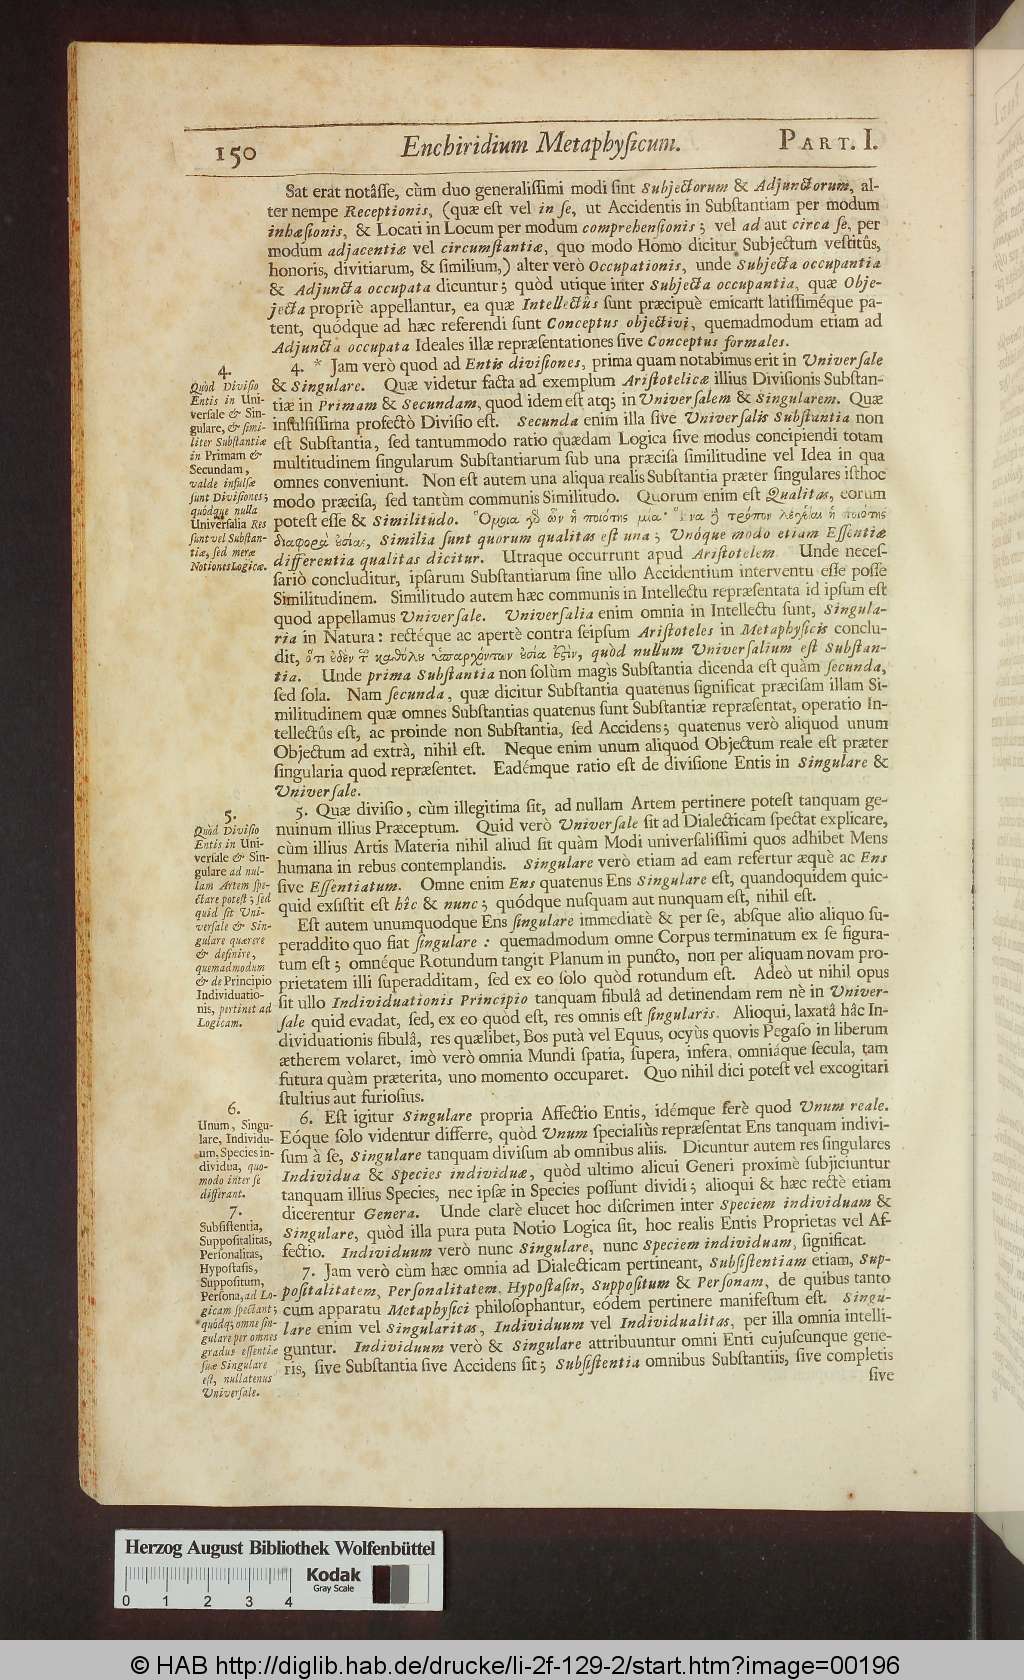 150 Enchiridium Metaphyſicum. PART. I.
Sat erat notâſſe, cùm duo generaliſſimi modi ſint Subjectorum & Adjunctorum, al-
ter nempe Receptionis, (quæ eſt vel in ſe, ut Accidentis in Subſtantiam per modum
inhæſionis, & Locati in Locum per modum comprehenſionis; vel ad aut circa ſe, per
modum adjacentiæ vel circumſtantiæ, quo modo Homo dicitur Subjectum veſtitûs,
honoris, divitiarum, & ſimilium,) alter verò Occupationis, unde Subjecta occupantia
& Adjuncta occupata dicuntur; quòd utique inter Subjecta occupantia, quæ Obje-
jecta propriè appellantur, ea quæ Intellectûs ſunt præcipuè emicant latiſſiméque pa-
tent, quódque ad hæc referendi ſunt Conceptus objectivi, quemadmodum etiam ad
Adjuncta occupata Ideales illæ repræſentationes ſive Conceptus formales.
4.
Quòd Diviſio
Entis in Uni-
verſale & Sin-
gulare, & ſimi-
liter Subſtantiæ
in Primam &
Secundam,
valde inſulſæ
ſunt Diviſiones;
quódque nulla
Univerſalia Res
ſunt vel Subſtan-
tiæ, ſed meræ
Notiones Logicæ.
4. * Jam verò quod ad Entis diviſiones, prima quam notabimus erit in Univerſale
& Singulare. Quæ videtur facta ad exemplum Ariſtotelicæ illius Diviſionis Subſtan-
tiæ in Primam & Secundam, quod idem eſt atq; in Univerſalem & Singularem. Quæ
inſulſiſſima profectò Diviſio eſt. Secunda enim illa ſive Univerſalis Subſtantia non
eſt Subſtantia, ſed tantummodo ratio quædam Logica ſive modus concipiendi totam
multitudinem ſingularum Subſtantiarum ſub una præciſa ſimilitudine vel Idea in qua
omnes conveniunt. Non eſt autem una aliqua realis Subſtantia præter ſingulares iſthoc
modo præciſa, ſed tantùm communis Similitudo. Quorum enim eſt Qualitas, eorum
poteſt eſſe & Similitudo. Ὅμοια γδ ὧν ἡ ποιότης μία· Ἕνα ϳ τρόπον λέγεται ἡ ποιότης
διαφορὰ ȣσίας, Similia ſunt quorum qualitas eſt una; Unóque modo etiam Eſſentiæ
differentia qualitas dicitur. Utraque occurrunt apud Ariſtotelem. Unde neceſ-
ſariò concluditur, ipſarum Subſtantiarum ſine ullo Accidentium interventu eſſe poſſe
Similitudinem. Similitudo autem hæc communis in Intellectu repræſentata id ipſum eſt
quod appellamus Univerſale. Univerſalia enim omnia in Intellectu ſunt, Singula-
ria in Natura: rectéque ac apertè contra ſeipſum Ariſtoteles in Metaphyſicis conclu-
dit, ὅτι ȣδὲν τ͂ καθόλȣ ὑπαρχόντων ȣσία ὅξιν, quòd nullum Univerſalium eſt Subſtan-
tia. Unde prima Subſtantia non ſolùm magis Subſtantia dicenda eſt quàm ſecunda,
ſed ſola. Nam ſecunda, quæ dicitur Subſtantia quatenus ſignificat præciſam illam Si-
militudinem quæ omnes Subſtantias quatenus ſunt Subſtantiæ repræſentat, operatio In-
tellectûs eſt, ac proinde non Subſtantia, ſed Accidens; quatenus verò aliquod unum
Objectum ad extrà, nihil eſt. Neque enim unum aliquod Objectum reale eſt præter
ſingularia quod repræſentet. Eadémque ratio eſt de diviſione Entis in Singulare &
Univerſale.
5.
Quòd Diviſio
Entis in Uni-
verſale & Sin-
gulare ad nul-
lam Artem ſpe-
ctare poteſt; ſed
quid ſit Uni-
verſale & Sin-
gulare quærere
& definire,
quemadmodum
& de Principio
Individuatio-
nis, pertinet ad
Logicam.
5. Quæ diviſio, cùm illegitima ſit, ad nullam Artem pertinere poteſt tanquam ge-
nuinum illius Præceptum. Quid verò Univerſale ſit ad Dialecticam ſpectat explicare,
cùm illius Artis Materia nihil aliud ſit quàm Modi univerſaliſſimi quos adhibet Mens
humana in rebus contemplandis. Singulare verò etiam ad eam refertur æquè ac Ens
ſive Eſſentiatum. Omne enim Ens quatenus Ens Singulare eſt, quandoquidem quic-
quid exſiſtit eſt hîc & nunc; quódque nuſquam aut nunquam eſt, nihil eſt.
Eſt autem unumquodque Ens ſingulare immediatè & per ſe, abſque alio aliquo ſu-
peraddito quo fiat ſingulare: quemadmodum omne Corpus terminatum ex ſe figura-
tum eſt; omnéque Rotundum tangit Planum in puncto, non per aliquam novam pro-
prietatem illi ſuperadditam, ſed ex eo ſolo quòd rotundum eſt. Adeò ut nihil opus
ſit ullo Individuationis Principio tanquam fibulâ ad detinendam rem nè in Univer-
ſale quid evadat, ſed, ex eo quòd eſt, res omnis eſt ſingularis. Alioqui, laxatâ hâc In-
dividuationis fibulâ, res quælibet, Bos putà vel Equus, ocyùs quovis Pegaſo in liberum
ætherem volaret, imò verò omnia Mundi ſpatia, ſupera, infera, omniáque ſecula, tam
futura quàm præterita, uno momento occuparet. Quo nihil dici poteſt vel excogitari
ſtultius aut furioſius.
6.
Unum, Singu-
lare, Individu-
um, Species in-
dividua, quo-
modo inter ſe
differant.
6. Eſt igitur Singulare propria Affectio Entis, idémque ferè quod Unum reale.
Eóque ſolo videntur differre, quòd Unum ſpecialiùs repræſentat Ens tanquam indivi-
ſum à ſe, Singulare tanquam diviſum ab omnibus aliis. Dicuntur autem res ſingulares
Individua & Species individuæ, quòd ultimo alicui Generi proximè ſubjiciuntur
tanquam illius Species, nec ipſæ in Species poſſunt dividi; alioqui & hæc rectè etiam
dicerentur Genera. Unde clarè elucet hoc diſcrimen inter Speciem individuam &
Singulare, quòd illa pura puta Notio Logica ſit, hoc realis Entis Proprietas vel Af-
fectio. Individuum verò nunc Singulare, nunc Speciem individuam, ſignificat.
7.
Subſiſtentia,
Suppoſitalitas,
Perſonalitas,
Hypoſtaſis,
Suppoſitum,
Perſona, ad Lo-
gicam ſpectant;
quódq; omne ſin-
gulare per omnes
gradus eſſentiæ
ſuæ Singulare
eſt, nullatenus
Univerſale.
7. Jam verò cùm hæc omnia ad Dialecticam pertineant, Subſiſtentiam etiam, Sup-
poſitalitatem, Perſonalitatem, Hypoſtaſin, Suppoſitum & Perſonam, de quibus tanto
cum apparatu Metaphyſici philoſophantur, eódem pertinere manifeſtum eſt. Singu-
lare enim vel Singularitas, Individuum vel Individualitas, per illa omnia intelli-
guntur. Individuum verò & Singulare attribuuntur omni Enti cujuſcunque gene-
ris, ſive Subſtantia ſive Accidens ſit; Subſiſtentia omnibus Subſtantiis, ſive completis
ſive
Herzog August Bibliothek Wolfenbüttel
Kodak
Gray Scale
0 1 2 3 4
© HAB http://diglib.hab.de/drucke/li-2f-129-2/start.htm?image=00196